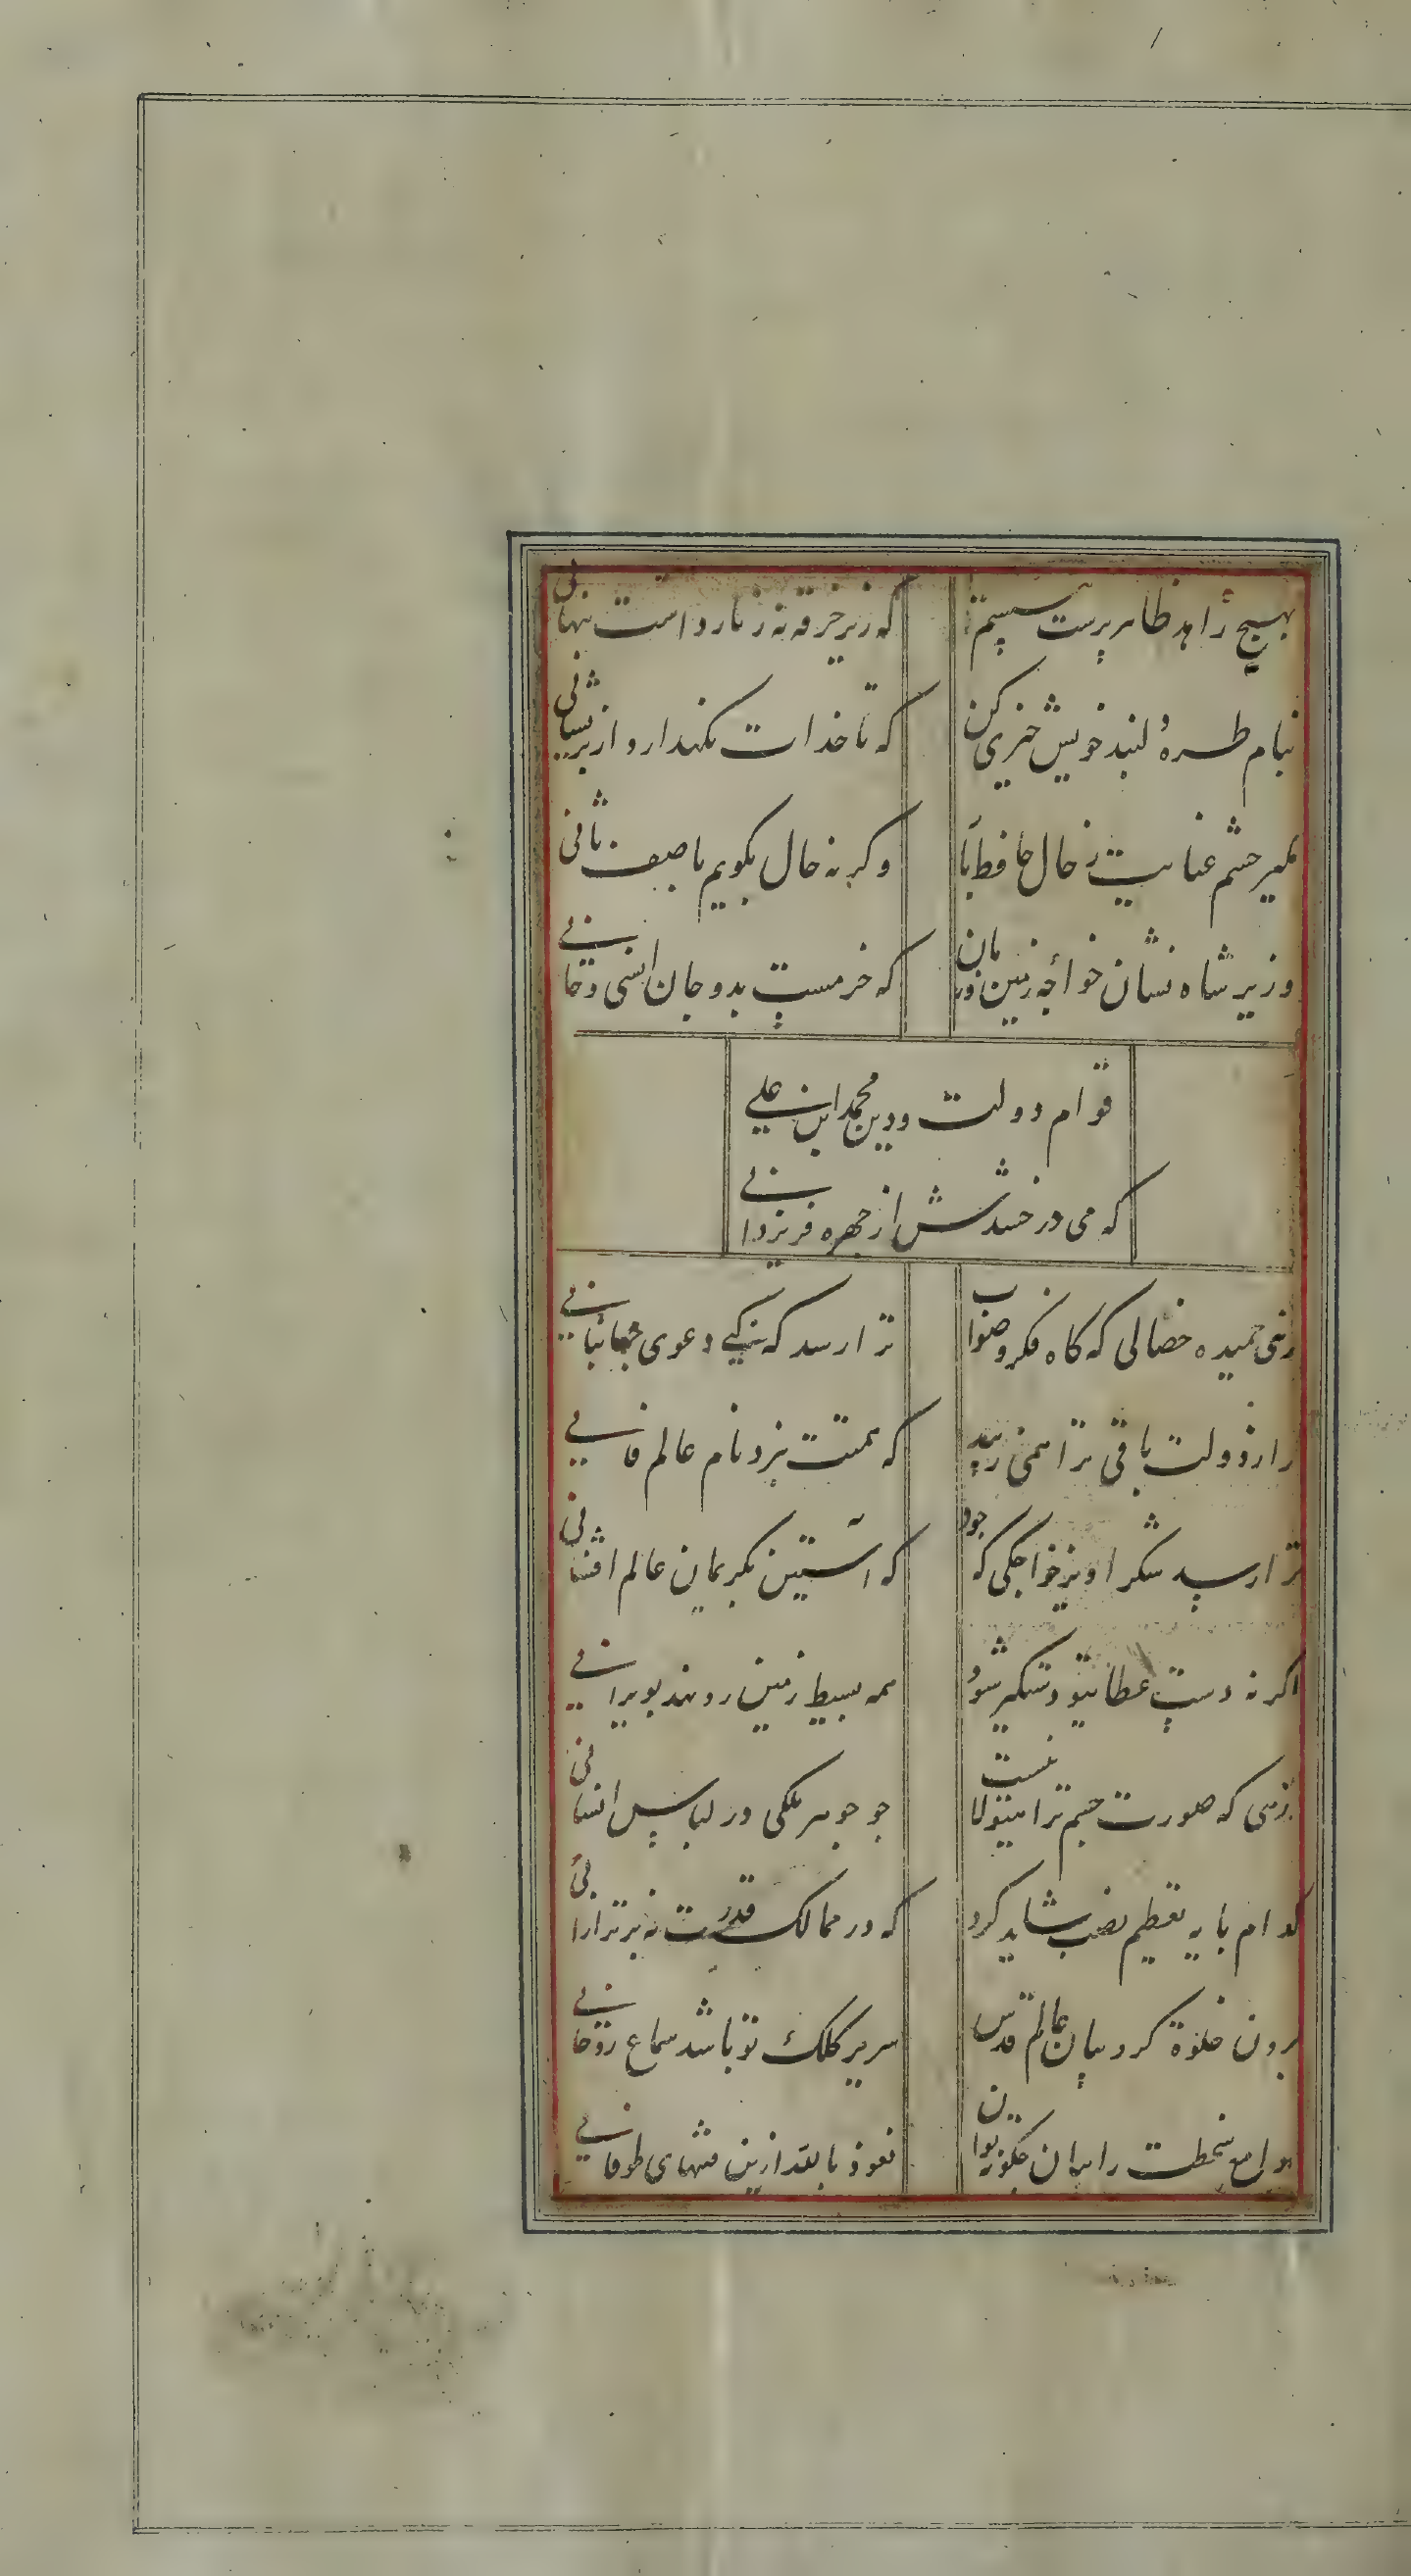 بهیچ زاهد ظاهرپرست ننشستم که زیر خرقه نه زنار داشت پنهانی
بنام طره دلبند خویش خیری کن که تا خدات نگهدارد از پریشانی
مگیر چشم عنایت ز حال حافظ باز وگرنه حال بگویم باصف ثانی
وزیر شاه نشان خواجه زمین و زمان که خرمست بدو جان انسی و جانی
قوام دولت و دین محمد ابن علی
که می درخشدش از چهره فر یزدانی
زهی حمیده خصالی که گاه فکر و صواب ترا رسد که کنی دعوی جهانبانی
طراز دولت باقی ترا همی زیبد که همتت نبرد نام عالم فانی
که آستین بکریمان عالم افشانی
اگر نه دست عطای تو دستگیر شود همه بسیط زمین رو نهد بویرانی
توئی که صورت جسم ترا هیولا نیست چو جوهر ملکی در لباس انسانی
کدام پایه تعظیم نصب شاید کرد که در ممالک قدرت نه برتر از آنی
درون خلوة کروبیان عالم قدس سریر کلک تو باشد سماع روحانی
سخطت را بیان چگونه توان نعوذ بالله ازین فتنهای طوفانی